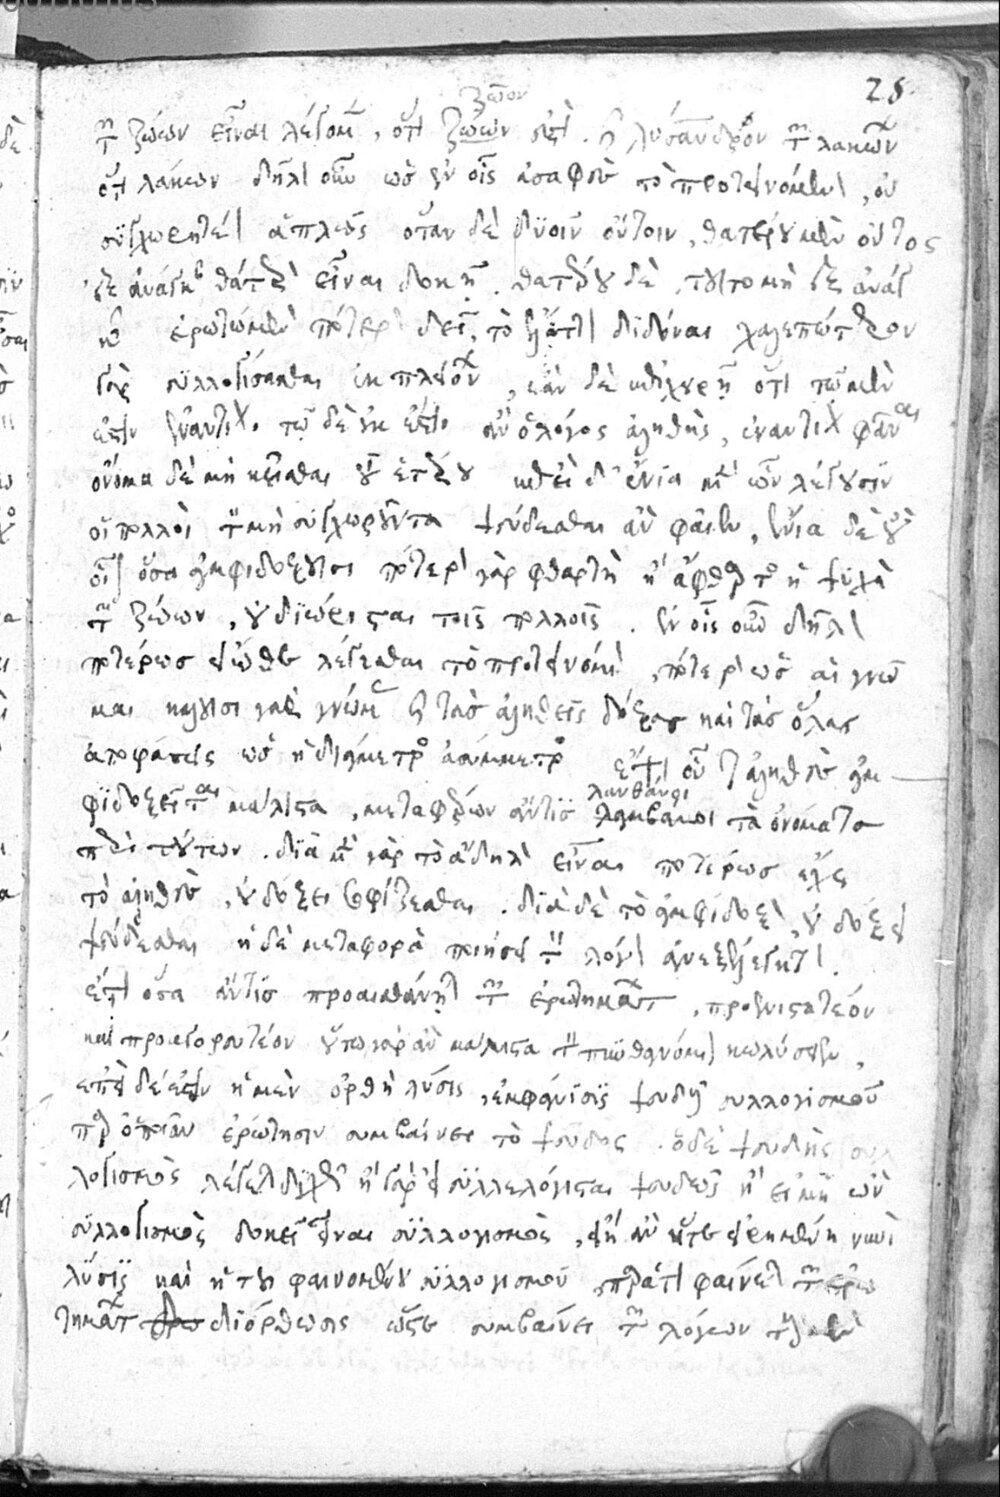 28
ζῶον
τῶν ζώων εἶναι λέγομεν, ὅτι ζώων ἐστί. καὶ λύσανδρον τῶν λακώνων
ὅτι λάκων δῆλον οὖν ὡς ἐν οἷς ἀσαφὲς τὸ προτεινόμενον, οὐ
συγχωρητέον ἁπλῶς ὅταν δὲ δυοῖν ὄντοιν, θατέρου μὲν ὄντος
ἐξ ἀνάγκης θάτερον εἶναι δοκῇ. θατέρου δὲ, τοῦτο μὴ ἐξ ἀνάγ
κης ἐρωτώμενον πότερον δεῖ, τὸ ἔλαττον διδόναι χαλεπώτερον
γὰρ συλλογίσασθαι ἐκ πλειόνων, ἐὰν δὲ ἐπιχειρῇ ὅτι τῷ μὲν
ἐστιν ἐναντίον. τῷ δὲ οὐκ ἔστιν. ἂν ὁ λόγος ἀληθὴς, ἐναντίον φάναι
ὄνομα δὲ μὴ κεῖσθαι τοῦ ἑτέρου ἐπεὶ δ' ἔνια μὲν ὧν λέγουσιν
οἱ πολλοὶ τὸν μὴ συγχωροῦντα ψεύδεσθαι ἂν φαῖεν, ἔνια δὲ οὒ
οἷον ὅσα ἀμφιδοξοῦσι πότερον γὰρ φθαρτὴ ἢ ἄφθαρτος ἡ ψυχὴ
τῶν ζώων, οὐ διώρισται τοῖς πολλοῖς. ἐν οἷς οὖν δῆλον
ποτέρως εἴωθε λέγεσθαι τὸ προτεινόμενον, πότερον ὡς αἱ γνῶ
μαι καλοῦσι γὰρ γνώμας καὶ τὰς ἀληθεῖς δόξας καὶ τὰς ὅλας
ἀποφάσεις ὡς ἡ διάμετρος ἀσύμμετρος ἔτι οὗ τἀληθὲς ἀμ
φιδοξεῖται μάλιστα, μεταφέρων ἄντις λαμβάνοι τὰ ὀνόματα
λανθάνοι
περὶ τούτων. διὰ μὲν γὰρ τὸ ἄδηλον εἶναι ποτέρως ἔχει
τὸ ἀληθὲς, οὐ δόξει σοφίζεσθαι. διὰ δὲ τὸ ἀμφίδοξον, οὐ δόξει
ψεύδεσθαι ἡ δὲ μεταφορὰ ποιήσει τὸν λόγον ἀνεξέλεγκτον.
ἔτι ὅσα ἄντις προαισθάνηται τῶν ἐρωτημάτων, προενστατέον
καὶ προαγορευτέον οὕτω γὰρ ἂν μάλιστα τὸν πυνθανόμενον κωλύσειεν,
ἐπεὶ δέ ἐστιν ἡ μὲν ὀρθὴ λύσις, ἐμφάνισις ψευδοῦς συλλογισμοῦ
παρ' ὁποίαν ἐρώτησιν συμβαίνει τὸ ψεῦδος. ὁ δὲ ψευδὴς συλ
λογισμὸς λέγεται διχῶς ἢ γὰρ εἰ συλλελόγισται ψευδῶς ἢ εἰ μὴ ὢν
συλλογισμὸς δοκεῖ εἶναι συλλογισμὸς, εἴη ἂν ἥτε εἰρημένη νυνὶ
λύσις καὶ ἡ τοῦ φαινομένου συλλογισμοῦ παρὰ τί φαίνεται τῶν ἐρω
τημάτων διόρθωσις ὥστε συμβαίνει τῶν λόγων τοὺς μὲν